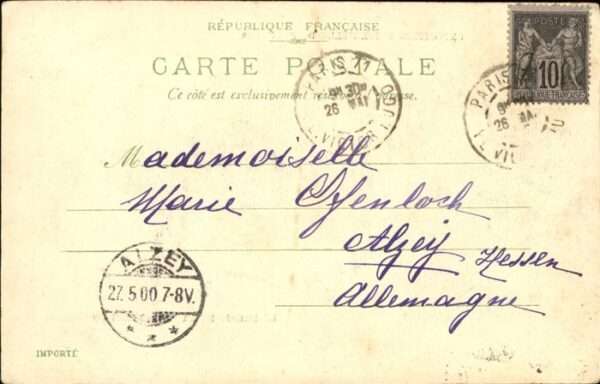 RÉPUBLIQUE FRANÇAISE
CARTE POSTALE
Ce côté est exclusivement réservé à l'adresse.
POSTE
10
REPUBLIQUE FRANÇAISE
PARIS 11
9H 30M
26 MAI
PARIS
26 MAI
Mademoiselle
Marie Ofenloch
Alzey Hessen
Allemagne
ALZEY
27.5.00.7-8V.
IMPORTÉ